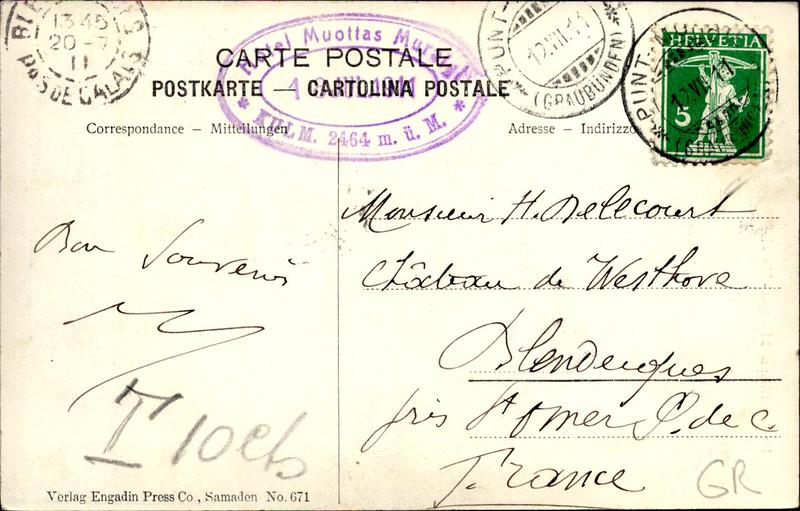 13 45
20 - 7
11
PAS DE CALAIS
Hotel Muottas Muraigl
1911
* KULM. 2464 m. ü. M. *
PUNT-
12.VII.11
(GRAUBÜNDEN)
HELVETIA
5
CARTE POSTALE
POSTKARTE — CARTOLINA POSTALE
Correspondance – Mitteilungen
Adresse – Indirizzo
Monsieur H. Delecourt
Château de Westhove
Blendecques
près St Omer P. de C.
France
Bon Souvenir
T 10 cts
GR
Verlag Engadin Press Co., Samaden No. 671